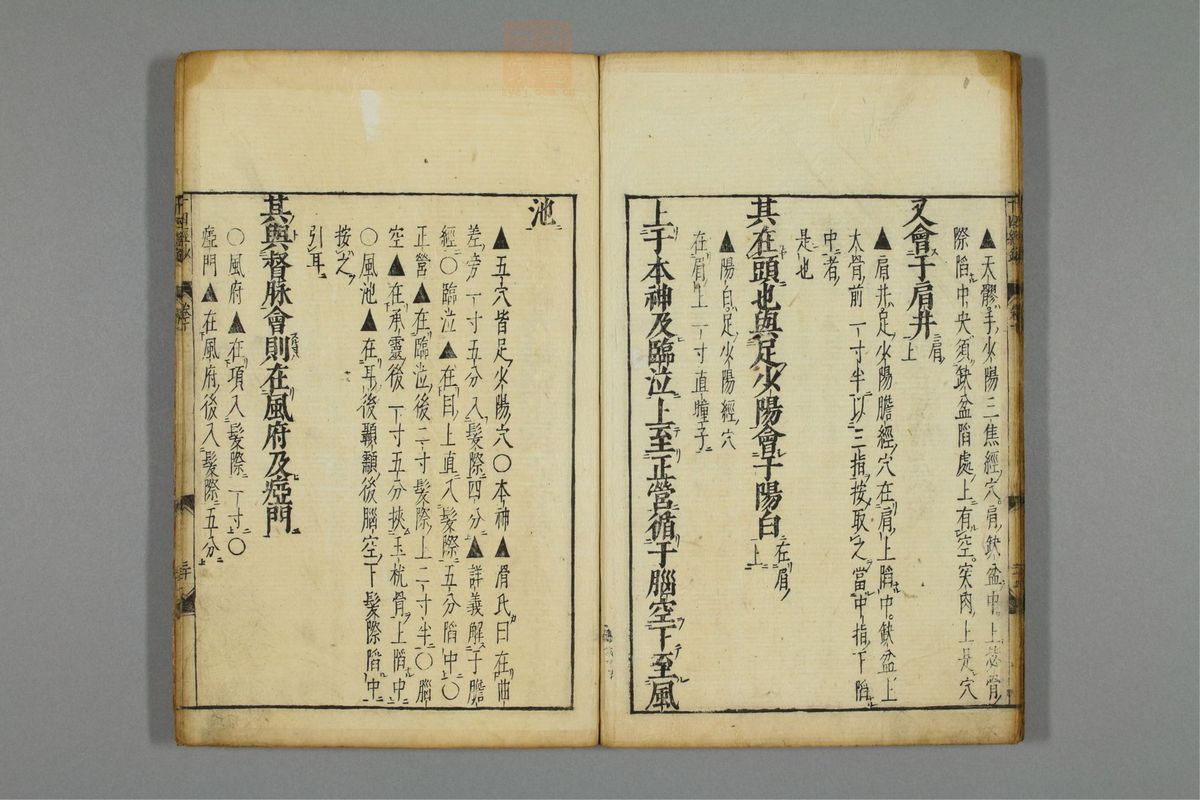 ▲天髎手少陽三焦經穴肩缺盆中上毖骨
際陷中央須缺盆陷處上有空突肉上是穴
又會于肩井肩上
▲肩井足少陽膽經穴在肩上陷中缺盆上
太骨前一寸半以三指按取之當中指下陷
中者
是也
其在頭也與足少陽會于陽白在眉上
▲陽白足少陽經穴
在眉上一寸直瞳子
上于本神及臨泣上至正營循于腦空下至風
池
▲五穴皆足少陽穴○本神▲滑氏曰在曲
差旁一寸五分入髮際四分▲詳義解于膽
經○臨泣▲在目上直入髮際五分陷中○
正營▲在臨泣後二寸髮際上二寸半○腦
空▲在承靈後一寸五分挾玉枕骨上陷中
○風池▲在耳後顳顬後腦空下髮際陷中
按之
引耳
其與督脉會則在風府及瘂門
○風府▲在項入髮際一寸○
瘂門▲在風府後入髮際五分